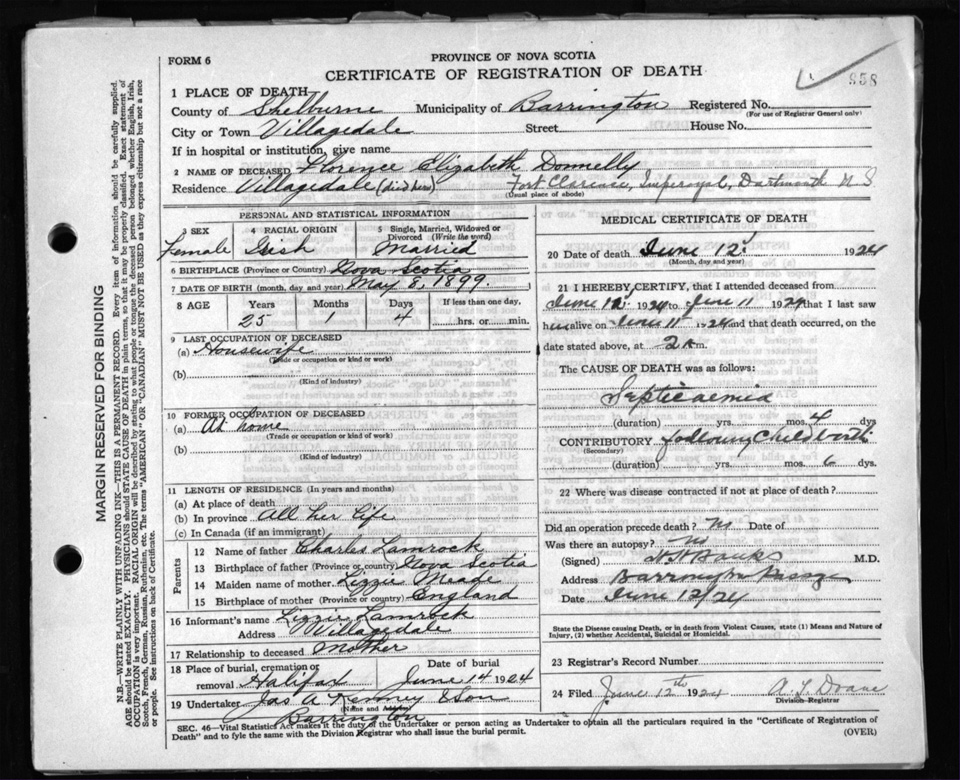 FORM 6
PROVINCE OF NOVA SCOTIA
CERTIFICATE OF REGISTRATION OF DEATH
958
1 PLACE OF DEATH
County of Shelburne Municipality of Barrington Registered No.
(For use of Registrar General only)
City or Town Villagedale Street House No.
If in hospital or institution, give name
2 NAME OF DECEASED Florence Elizabeth Donnelly
Residence Villagedale (died here) Fort Clarence, Imperoyal, Dartmouth N S
(Usual place of abode)
PERSONAL AND STATISTICAL INFORMATION
3 SEX 4 RACIAL ORIGIN 5 Single, Married, Widowed or Divorced (Write the word)
Female Irish Married
6 BIRTHPLACE (Province or Country) Nova Scotia
7 DATE OF BIRTH (month, day and year) May 8, 1899.
8 AGE Years Months Days If less than one day.
25 1 4 hrs. or min.
9 LAST OCCUPATION OF DECEASED
(a) Housewife
(Trade or occupation or kind or work)
(b)
(Kind of industry)
10 FORMER OCCUPATION OF DECEASED
(a) At home
(Trade or occupation or kind of work)
(b)
(Kind of industry)
11 LENGTH OF RESIDENCE (In years and months)
(a) At place of death
(b) In province All her life
(c) In Canada (if an immigrant)
Parents
12 Name of father Charles Lamrock
13 Birthplace of father (Province or Country) Nova Scotia
14 Maiden name of mother. Lizzie Meade
15 Birthplace of mother (Province or Country) England
16 Informant's name Lizzie Lamrock
Address Villagedale
17 Relationship to deceased Mother
18 Place of burial, cremation or removal Halifax Date of burial June 14 1924
19 Undertaker Jas A Kenney & Son
(Name and Address)
Barrington
MEDICAL CERTIFICATE OF DEATH
20 Date of death June 12 1924
(Month, day and year)
21 I HEREBY CERTIFY, that I attended deceased from
June 12 1924 to June 11 1924, that I last saw
her alive on June 11 1924 and that death occurred, on
date stated above, at 2 A m.
The CAUSE OF DEATH was as follows:
Septicaemia
(duration) yrs. mos. 4 dys
CONTRIBUTORY following Childbirth
(Secondary)
(duration) yrs. mos. 6 dys.
22 Where was disease contracted if not at place of death?
Did an operation precede death? no Date of
Was there an autopsy? no
(Signed) Banks M.D.
Address Barrington Passage
Date June 12/24
State the Disease causing Death, or in death from Violent Causes, state (1) Means and Nature of
Injury, (2) whether Accidental, Suicidal or Homicidal.
23 Registrar's Record Number
24 Filed June 12th 1924 A. L. Doane
Division Registrar
SEC. 46—Vital Statistics Act makes it the duty of the Undertaker or person acting as Undertaker to obtain all the particulars required in the "Certificate of Registration of
Death" and to fyle the same with the Division Registrar who shall issue the burial permit.
(OVER)
MARGIN RESERVED FOR BINDING
N.B.—WRITE PLAINLY WITH UNFADING INK—THIS IS A PERMANENT RECORD. Every item of information should be carefully supplied.
AGE should be stated EXACTLY. PHYSICIANS should STATE CAUSE OF DEATH in plain terms, so that it may be properly classified. Exact statement of
OCCUPATION is very important. RACIAL ORIGIN will be described by stating to what people or tongue the deceased person belonged whether English, Irish,
Scotch, French, German, Russian, Ruthenian, etc. The terms "AMERICAN" or "CANADIAN" MUST NOT BE USED as they express citizenship but not a race
or people. See instructions on back of Certificate.